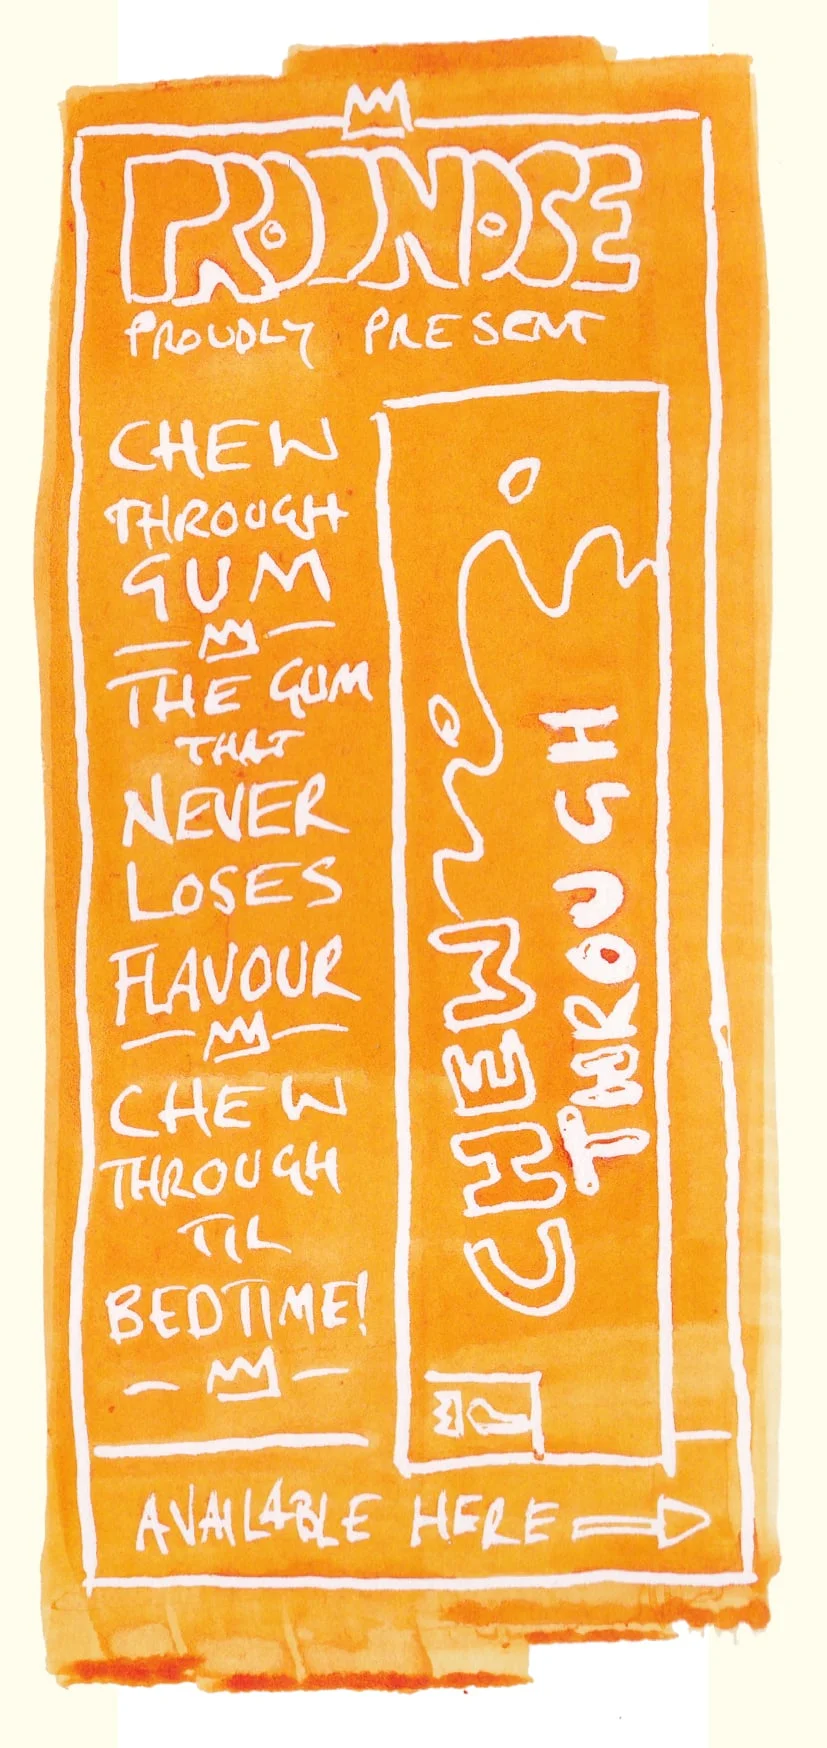 PRO NOSE
PROUDLY PRESENT
CHEW
THROUGH
GUM
THE GUM
THAT
NEVER
LOSES
FLAVOUR
CHEW
THROUGH
TIL
BEDTIME!
CHEW
THROUGH
AVAILABLE HERE